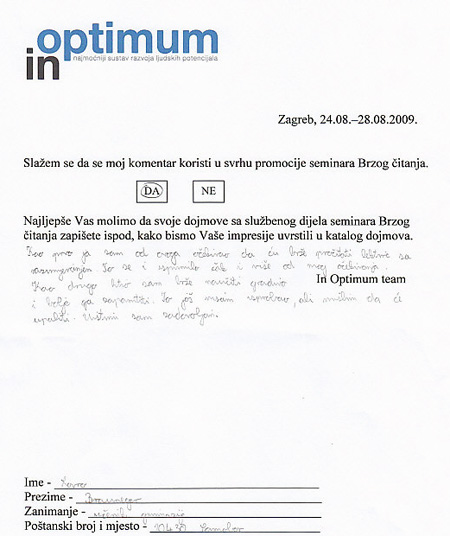 in optimum
najmoćniji sustav razvoja ljudskih potencijala
Zagreb, 24.08.–28.08.2009.
Slažem se da se moj komentar koristi u svrhu promocije seminara Brzog čitanja.
DA NE
Najljepše Vas molimo da svoje dojmove sa službenog dijela seminara Brzog
čitanja zapišete ispod, kako bismo Vaše impresije uvrstili u katalog dojmova.
Kao prvo ja sam od ovoga očekivao da ću brže pročitati lektire sa
razumijevanjem. To se i ispunilo čak i više od mog očekivanja.
In Optimum team
Kao drugo htio sam brže naučiti gradivo
i bolje ga zapamtiti. To još nisam isprobao, ali mislim da će
upaliti. sam zadovoljan.
Ime -
Prezime -
Zanimanje - učenik gimnazije
Poštanski broj i mjesto - 10430 Samobor